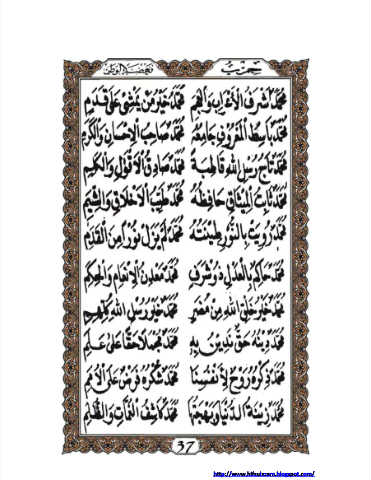 مُحَمَّدٌ أَشْرَفُ الْأَعْرَابِ وَالْعَجَمِ مُحَمَّدٌ خَيْرُ مَنْ يَمْشِي عَلَى قَدَمِ
مُحَمَّدٌ بَاسِطُ الْمَعْرُوفِ جَامِعُهُ مُحَمَّدٌ صَاحِبُ الْإِحْسَانِ وَالْكَرَمِ
مُحَمَّدٌ تَاجُ رُسْلِ اللهِ قَاطِبَةً مُحَمَّدٌ صَادِقُ الْأَقْوَالِ وَالْكَلِمِ
مُحَمَّدٌ ثَابِتُ الْمِيثَاقِ حَافِظُهُ مُحَمَّدٌ طَيِّبُ الْأَخْلَاقِ وَالشِّيَمِ
مُحَمَّدٌ رُوِيَتْ بِالنُّورِ طِينَتُهُ مُحَمَّدٌ لَمْ يَزَلْ نُورًا مِنَ الْقِدَمِ
مُحَمَّدٌ حَاكِمٌ بِالْعَدْلِ ذُو شَرَفٍ مُحَمَّدٌ مَعْدِنُ الْإِنْعَامِ وَالْحِكَمِ
مُحَمَّدٌ خَيْرُ خَلْقِ اللهِ مِنْ مُضَرٍ مُحَمَّدٌ خَيْرُ رُسْلِ اللهِ كُلِّهِمِ
مُحَمَّدٌ دِينُهُ حَقٌّ نَدِينُ بِهِ مُحَمَّدٌ مُجْمَلًا حَقًّا عَلَى عَلَمِ
مُحَمَّدٌ ذِكْرُهُ رُوحٌ لِأَنْفُسِنَا مُحَمَّدٌ شُكْرُهُ فَرْضٌ عَلَى الْأُمَمِ
مُحَمَّدٌ زِينَةُ الدُّنْيَا وَبَهْجَتُهَا مُحَمَّدٌ كَاشِفُ الْغُمَّاتِ وَالظُّلَمِ
37
http://www.hifsulxsam.blogspot.com/